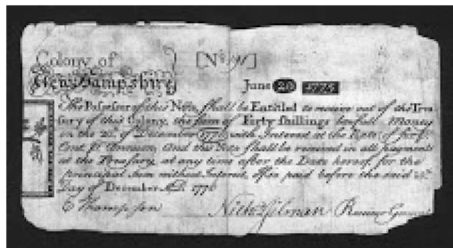 Colony of [No 191]
New Hampshire June 20 1775
The Possessor of this Note, shall be Entitled to receive out of the Trea
sury of this Colony, the sum of Forty shillings lawfull Money
on the 20th of December 1776 with Interest at the Rate of Six P
Cent P Annum, And this Note shall be received in all payments
at the Treasury, at any time after the Date hereof for the
principal Sum without Interest, if so paid before the said 20th
Day of December A.D. 1776
E Thompson Nichs Gilman Receiver General